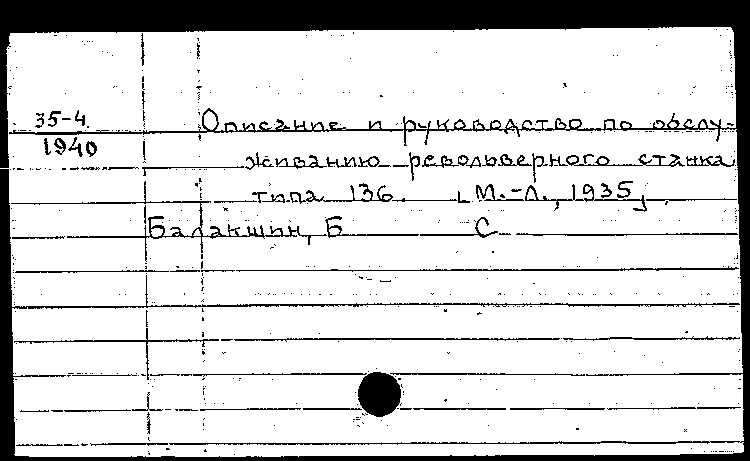 35-4
1940
Описание и руководство по обслу-
живанию револьверного станка
типа 136. [М.-Л., 1935].
Балакшин, Б С